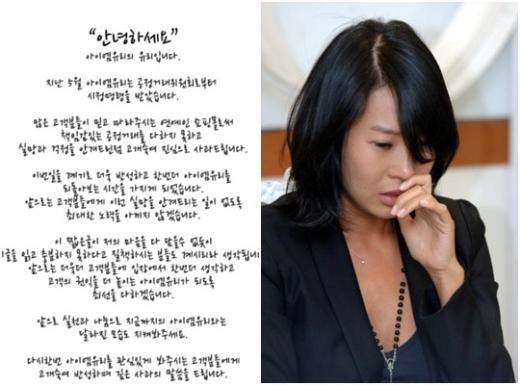 “안녕하세요”
아이엠유리의 유리입니다.
지난 5월 아이엠유리는 공정거래위원회로부터
시정명령을 받았습니다.
많은 고객분들이 믿고 따라주시는 연예인 쇼핑몰로써
책임감있는 공정거래를 다하지 못하고
실망과 걱정을 안겨드린점 고개숙여 진심으로 사과드립니다.
이번일을 계기로 더욱 반성하고 한번더 아이엠유리를
되돌아보는 시간을 가지게 되었습니다.
앞으로는 고객분들에게 이런 실망을 안겨드리는 일이 없도록
최대한 노력을 아끼지 않겠습니다.
이 짧은글이 저의 마음을 다 담을수 없듯이
글을 읽고 충분하지 못하다고 질책하시는 분들도 계시리라 생각됩니
앞으로는 더욱더 고객분들에 입장에서 한번더 생각하고
고객의 권익을 더 높이는 아이엠유리가 되도록
최선을 다하겠습니다.
앞으로 실천과 나눔으로 지금까지의 아이엠유리와는
달라진 모습도 지켜봐주세요.
다시한번 아이엠유리를 관심있게 봐주시는 고객분들에게
고개숙여 반성하며 깊은 사과의 말씀을 드립니다.